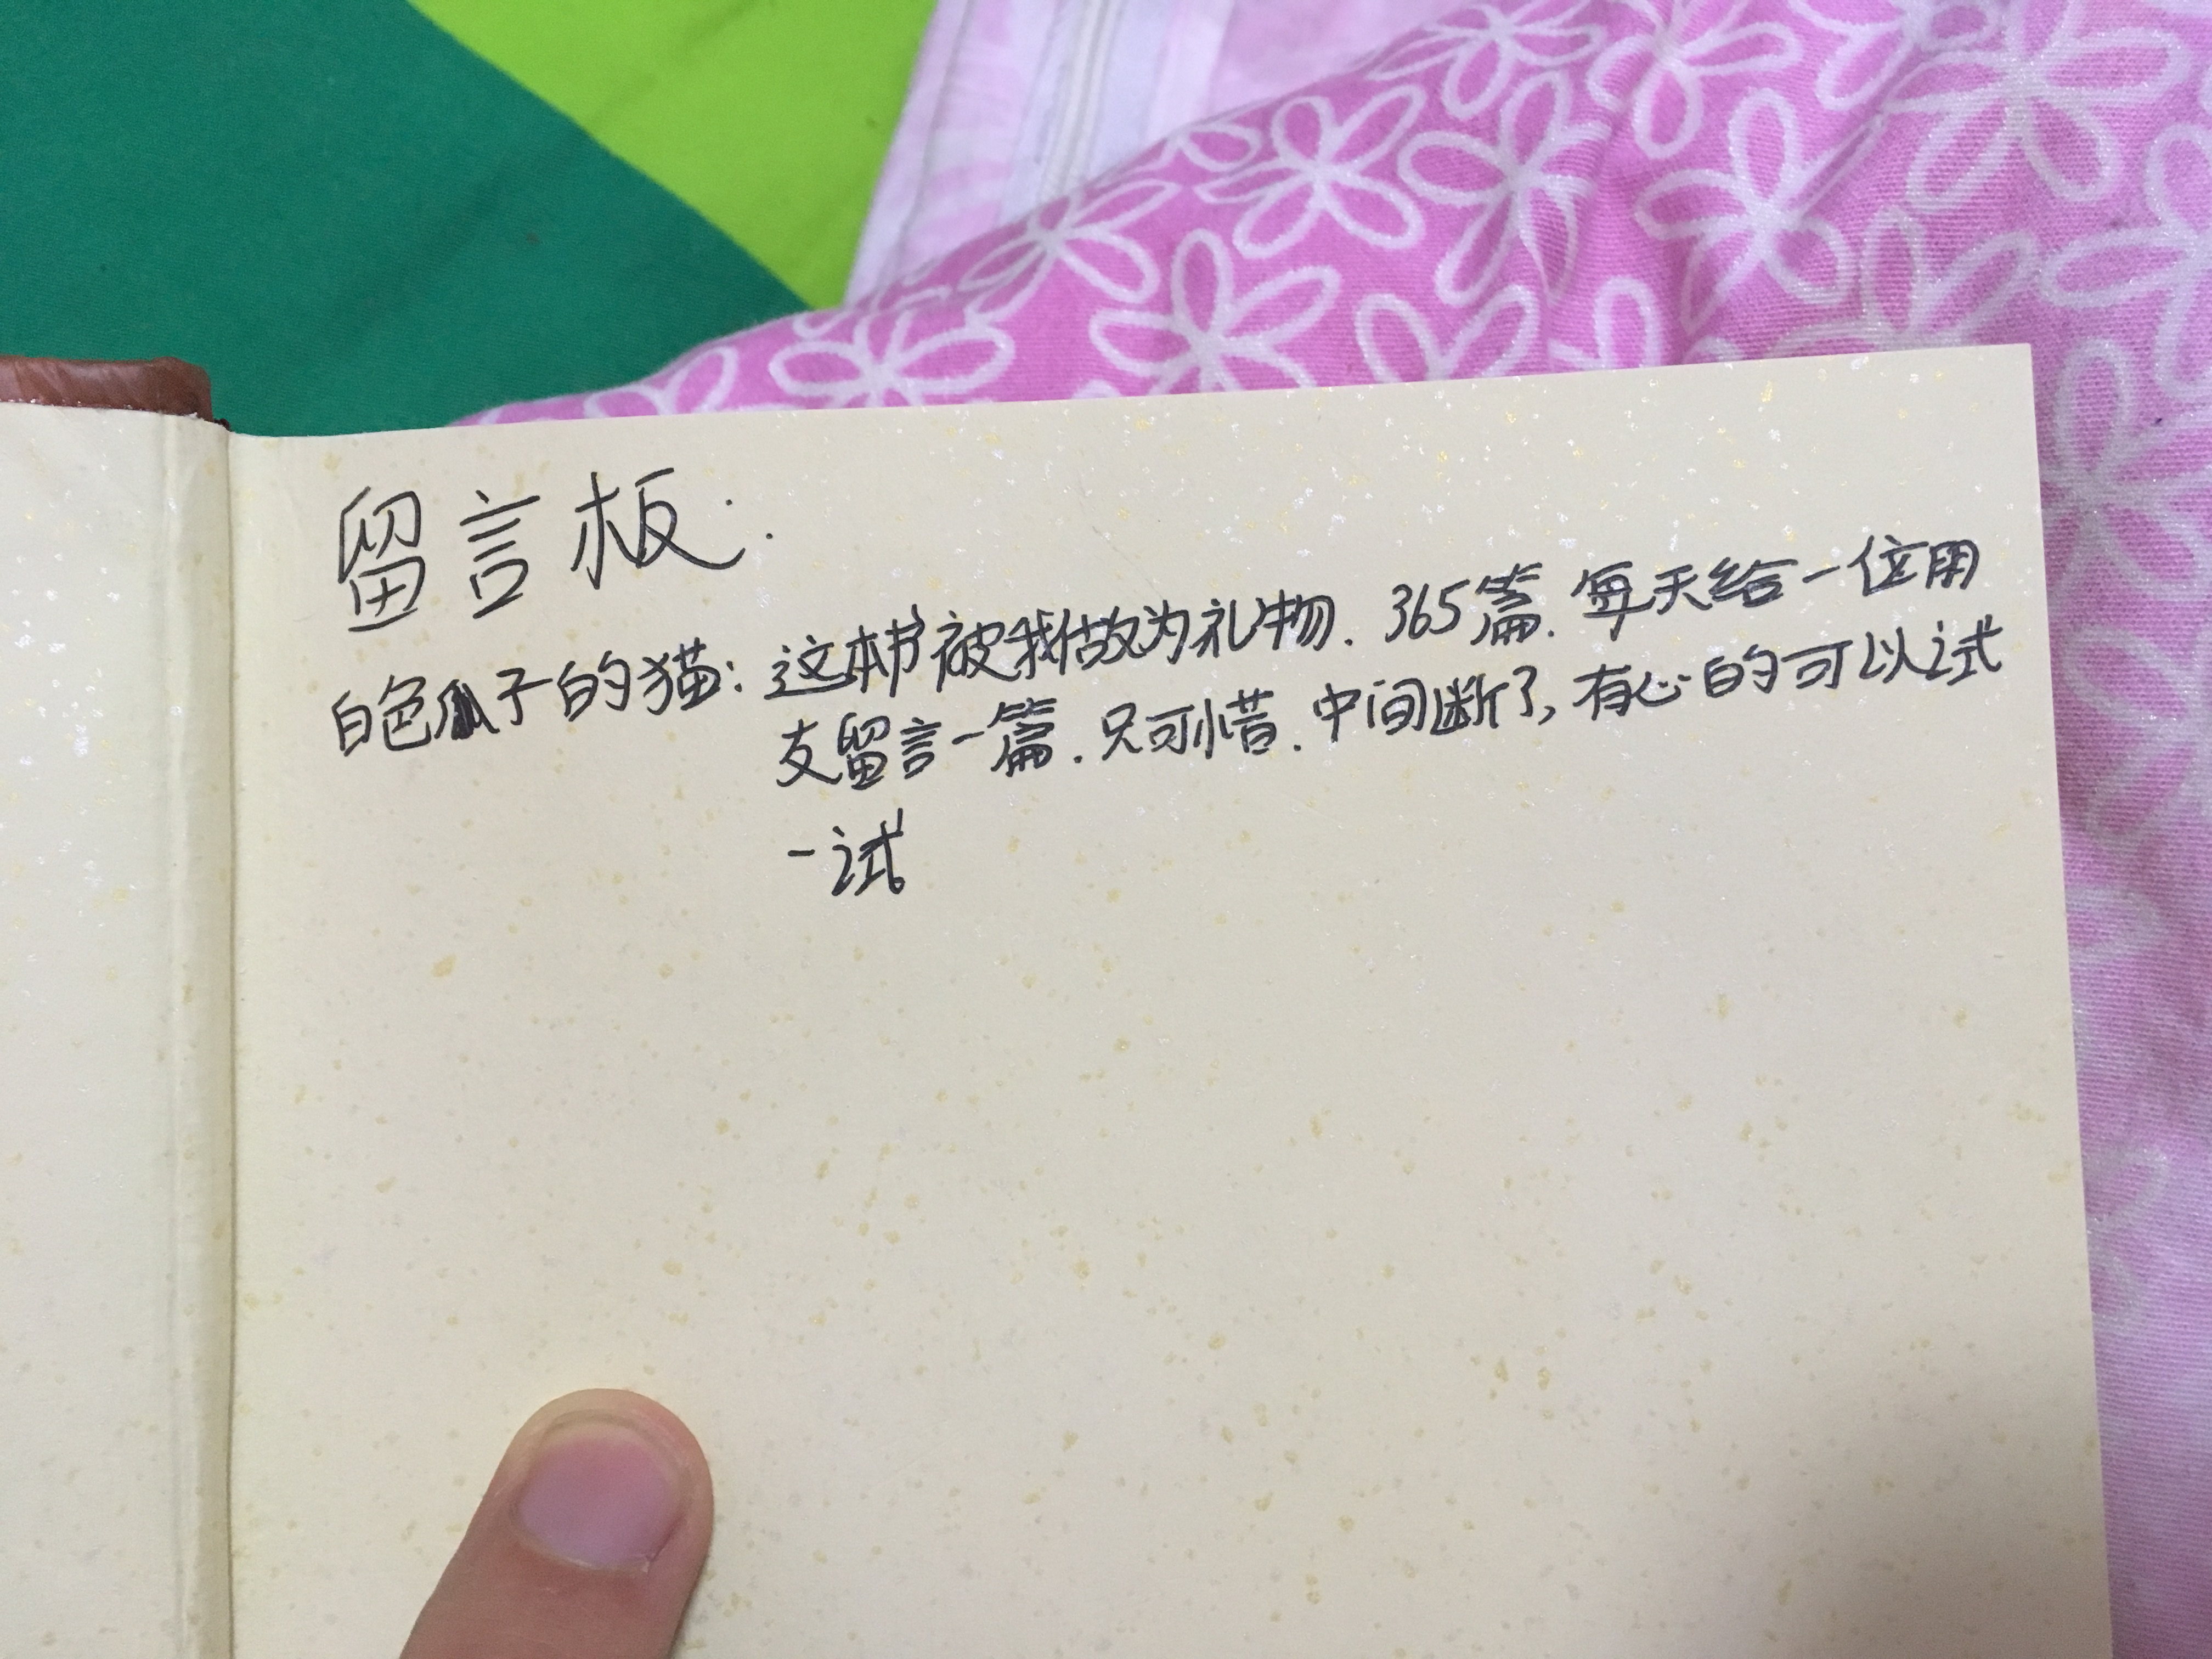 留言板:
白色瓜子的猫: 这本书被我做为礼物. 365篇. 每天给一位用
友留言一篇. 只可惜. 中间断了, 有心的可以试
一试